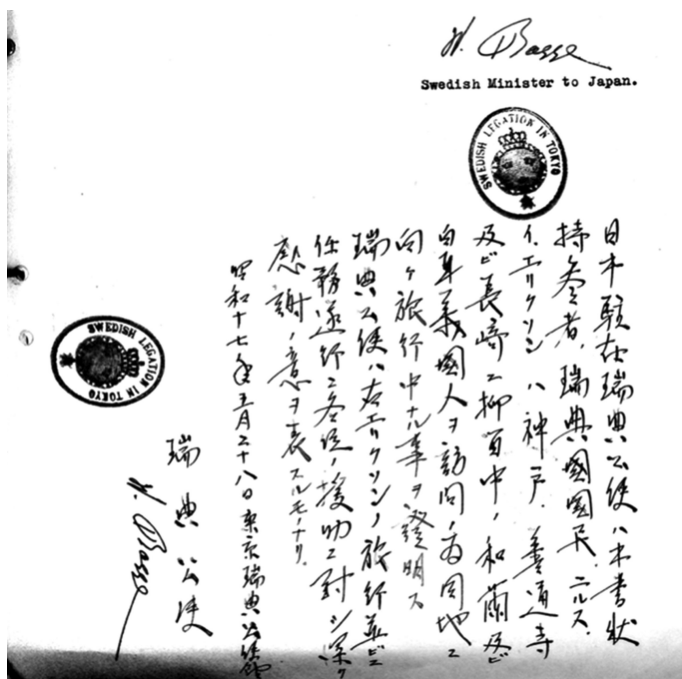 W. Bagge
Swedish Minister to Japan.
SWEDISH LEGATION IN TOKYO
日本駐在瑞典公使ハ本書状
持参者、瑞典國國民、ニルス、
イ、エリクソンハ神戸、善通寺
及ビ長崎ニ抑留中ノ和蘭及ビ
白耳義國人ヲ訪問ノ為同地ニ
向ケ旅行中ナル事ヲ證明ス
瑞典公使ハ右エリクソンノ旅行並ビニ
任務遂行ニ各位ノ援助ニ対シ深ク
感謝ノ意ヲ表スルモノナリ、
昭和十七年五月二十八日東京瑞典公使館
瑞典公使
W. Bagge
SWEDISH LEGATION IN TOKYO